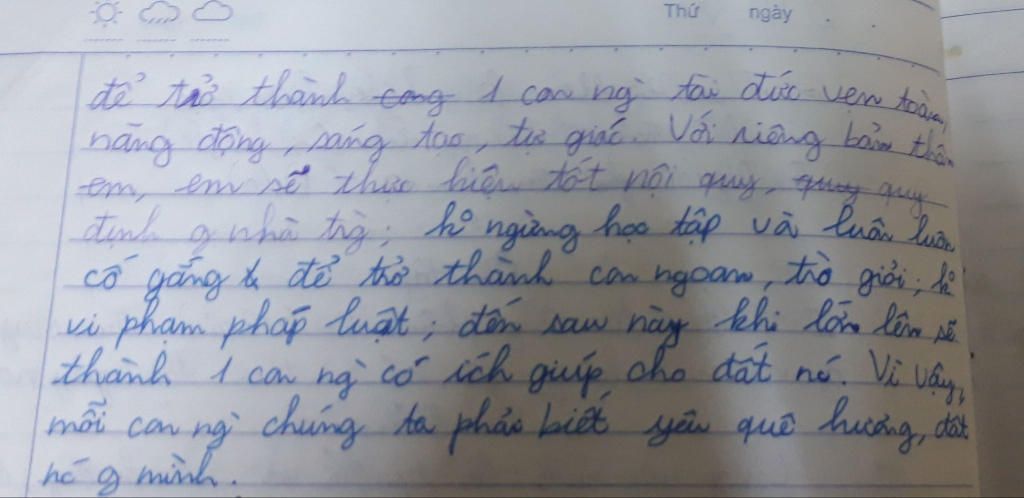 Thứ ngày
để trở thành cong 1 con ng` tài đức vẹn toàn,
năng động, sáng tạo, tự giác. Với riêng bản thân
em, em sẽ thực hiện tốt nội quy, quy quy
định g nhà trg`; ko ngừng học tập và luôn luôn
cố gắng để trở thành con ngoan, trò giỏi; ko
vi phạm pháp luật; đến sau này khi lớn lên sẽ
thành 1 con ng` có ích giúp cho đất nc´. Vì vậy,
mỗi con ng` chúng ta phải biết yêu quê hương, đất
nc´ g mình.